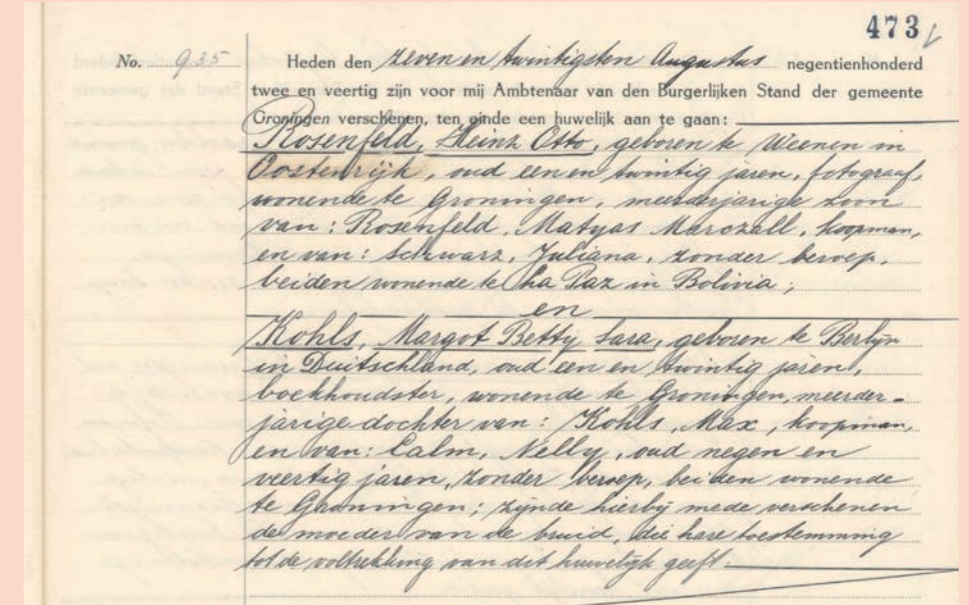 473
No. 935 Heden den zeven en twintigsten Augustus negentienhonderd
twee en veertig zijn voor mij Ambtenaar van den Burgerlijken Stand der gemeente
Groningen verschenen, ten einde een huwelijk aan te gaan:
Rosenfeld, Heinz Otto, geboren te Weenen in
Oostenrijk, oud een en twintig jaren, fotograaf,
wonende te Groningen, meerderjarige zoon
van: Rosenfeld, Matyas Marczall, koopman,
en van: Schwarz, Juliana, zonder beroep,
beiden wonende te La Paz in Bolivia;
en
Kohls, Margot Betty Sara, geboren te Berlijn
in Duitschland, oud een en twintig jaren,
boekhoudster, wonende te Groningen, meerder-
jarige dochter van: Kohls, Max, koopman,
en van: Calm, Nelly, oud negen en
veertig jaren, zonder beroep, beiden wonende
te Groningen; zijnde hierbij mede verschenen
de moeder van de bruid, die hare toestemming
tot de voltrekking van dit huwelijk geeft.